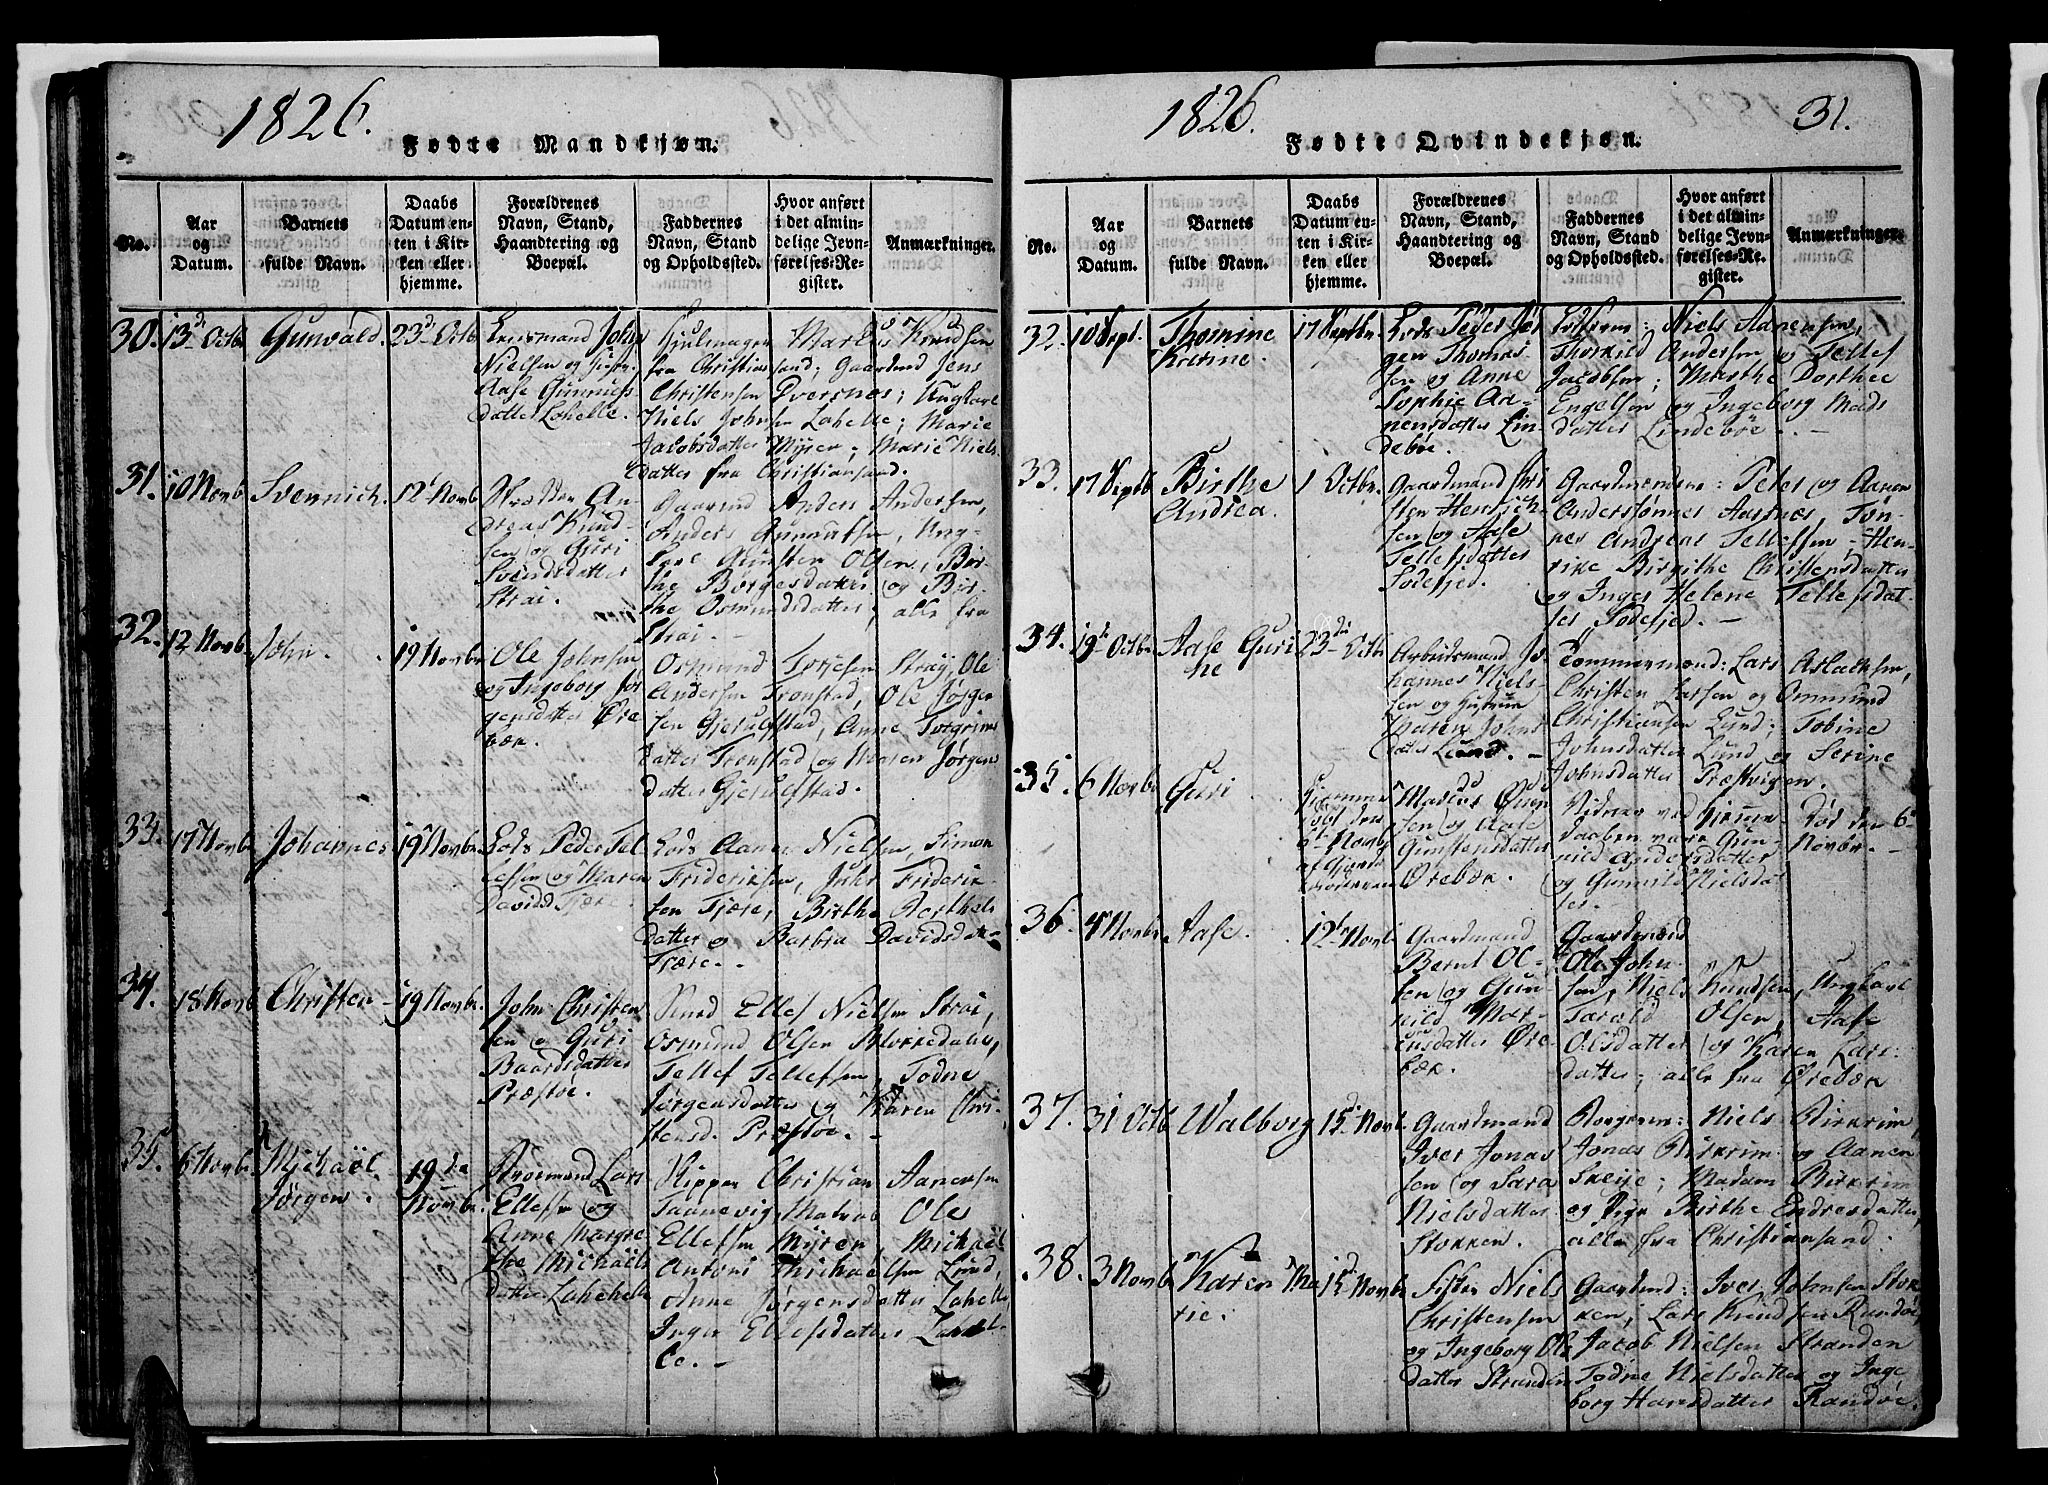 1826.
Fødte Mandkjøn.
No.
Aar
og
Datum.
Barnets
fulde Navn.
Daabs
Datum en-
ten i Kir-
ken eller
hjemme.
Forældrenes
Navn, Stand,
Haandtering og
Boepæl.
Faddernes
Navn, Stand
og Opholdssted.
Hvor anført
i det almin-
delige Jevn-
førelses-Re-
gister.
Anmærkninger.
30.
13d Octb
Gunvald
23d Octb
John
Nielsen og
Aase Gunnufs
datter Lahelle.
Hjulmager Marius Knudsen
fra Christiansand; Gaardmd Jens
Christensen Dversnes; Ungkarl
Niels Johnsen Lahelle; Marie
Jacobsdatter Myren; Marie Niels
datter fra Christiansand.
31.
10 Novb
Svennich.
12t Novb
An-
dreas Knud-
sen og Guri
Svendsdatter
Strai.
Gaarmd Anders Andersen,
Anders Ung-
karl Gunsten Olsen, Bir-
the Børgesdatter og Bir-
the Osmundsdatter, alle fra
Strai. -
32.
12 Novb
John.
19 Novbr
Ole Johnsen
og Ingeborg Jør
gensdatter Øre
bæk.
Osmund Torjesen Straÿ, Ole
Andersen Tronstad, Ole Jørgen
sen Gjerulfstad, Anne Torgrims
datter Tronstad og Maren Jørgen
datter Gjerulfstad.
33.
17 Novbr
Johannes
19 Novbr
Lods Peder Tel
lefsen og Maren
Davids Fjære.
Lods Aanen Nielsen, Simon
Frideriksen, Juhr Friderik-
sen Fjære, Birthe Berthels
datter og Barbra Davidsdat-
Fjære. -
34.
18 Novb
Christen
19 Novbr.
John Christen
sen og Guri
Baardsdatter
Præstøe.
Knud Ellef Nielsen Strai,
Osmund Olsen Mokkedalen,
Tellef Tellefsen, Todne
Jørgensdatter og Karen Chri-
stensd. Præstøe. -
35.
6 Novbr
Michaël
Jørgen.
19de
Novbr.
Lars
Ellefsen og
Anne Margre
the Michaëls
datter Lahelle
Skipper Christian Aanensen
Taanevig, Matros Ole
Ellefsen Myren Michaël
Antoni Michaelsen Lund,
Anne Jørgensdatter Lahelle,
Inger Ellefsdatter Lahel-
le. -
1826.
31.
Fødte Qvindekjøn.
No.
Aar
og
Datum.
Barnets
fulde Navn.
Daabs
Datum en-
ten i Kir-
ken eller
hjemme.
Forældrenes
Navn, Stand,
Haandtering og
Boepæl.
Faddernes
Navn, Stand
og Opholdssted.
Hvor anført
i det almin-
delige Jevn-
førelses-Re-
gister.
Anmærkninger.
32.
10 Sept.
Thomine
Karine.
17 Septbr.
Lods Peder Jør
gen Thomas-
sen og Anne
Sophie Aa-
nensdatter Lin
debøe.
Niels Aanensen,
Thorkild Andersen og Tellef
Jacobsen; Marthe Dorthee
Engelsen og Ingeborg Mads
datter Lindebøe. -
33.
17 Septb
Birthe
Andrea.
1 Octbr.
Gaardmand Chri
sten Henrich-
sen og Aase
Tellefsdatter
Fodefjed.
Gaardmændene: Peter og Aanen
Anderssønner Aastnæs, Tøn-
nes Andreas Tellefsen - Hen-
rike Birgithe Christensdatter
og Inger Helene Tellefsdat-
ter Fodefjed. -
34.
19de Octbr.
Aase Guri
he
23de Octb
Arbeidsmand Jo-
hannes Niels-
sen og Hustrue
Karen Johns
datter Lund. -
Tømmermænd: Lars Aslaksen,
Christen Larsen og Ommund
Christiansen Lund; Tobine
Johnsdatter Lund og Serine
Johnsdatter Præstvigen.
35.
6 Novbr
Guri
Hjemme
døbt den
6t Novb
af
Marcus Ousen
sen og Aase
Gunstensdatter
Ørebæk.
Vidner ved Hjemme-
daaben vare Gun-
nild Andersdatter
og Gunnild Nielsdat
ter.
Død den 6
Novbr. -
36.
4 Novbr
Aase.
12t Novb
Gaardmand
Bernt Ol-
sen og Gun-
nild Mor-
tensdatter Øre
bæk.
Gaardmænd
Ole John-
sen, Niels Knudsen, Ungkarl
Tarald Olsen, Aase
Olsdatter og Karen Lars-
datter; alle fra Ørebæk
37.
31 Octb
Walborg
15d Novbr.
Gaardmand
Iver Jonas
sen og Sara
Nielsdatter
Stokken.
Borgerne: Niels Birkrim,
Jonas Birkrim og Aanen
Skeije; Madam Birkrim
og Pige Birthe Endresdatter,
alle fra Christiansand.
38.
3 Novbr
Karen Ma
rie.
15d Novbr
Fisker Niels
Christensen
og Ingeborg Ols
datter Stranden
Gaardmd: Iver Johnsen Stok
ken, Lars Knudsen Randøe,
Jacob Nielsen Stranden
Todne Nielsdatter og Inge
borg Hansdatter Randøe.